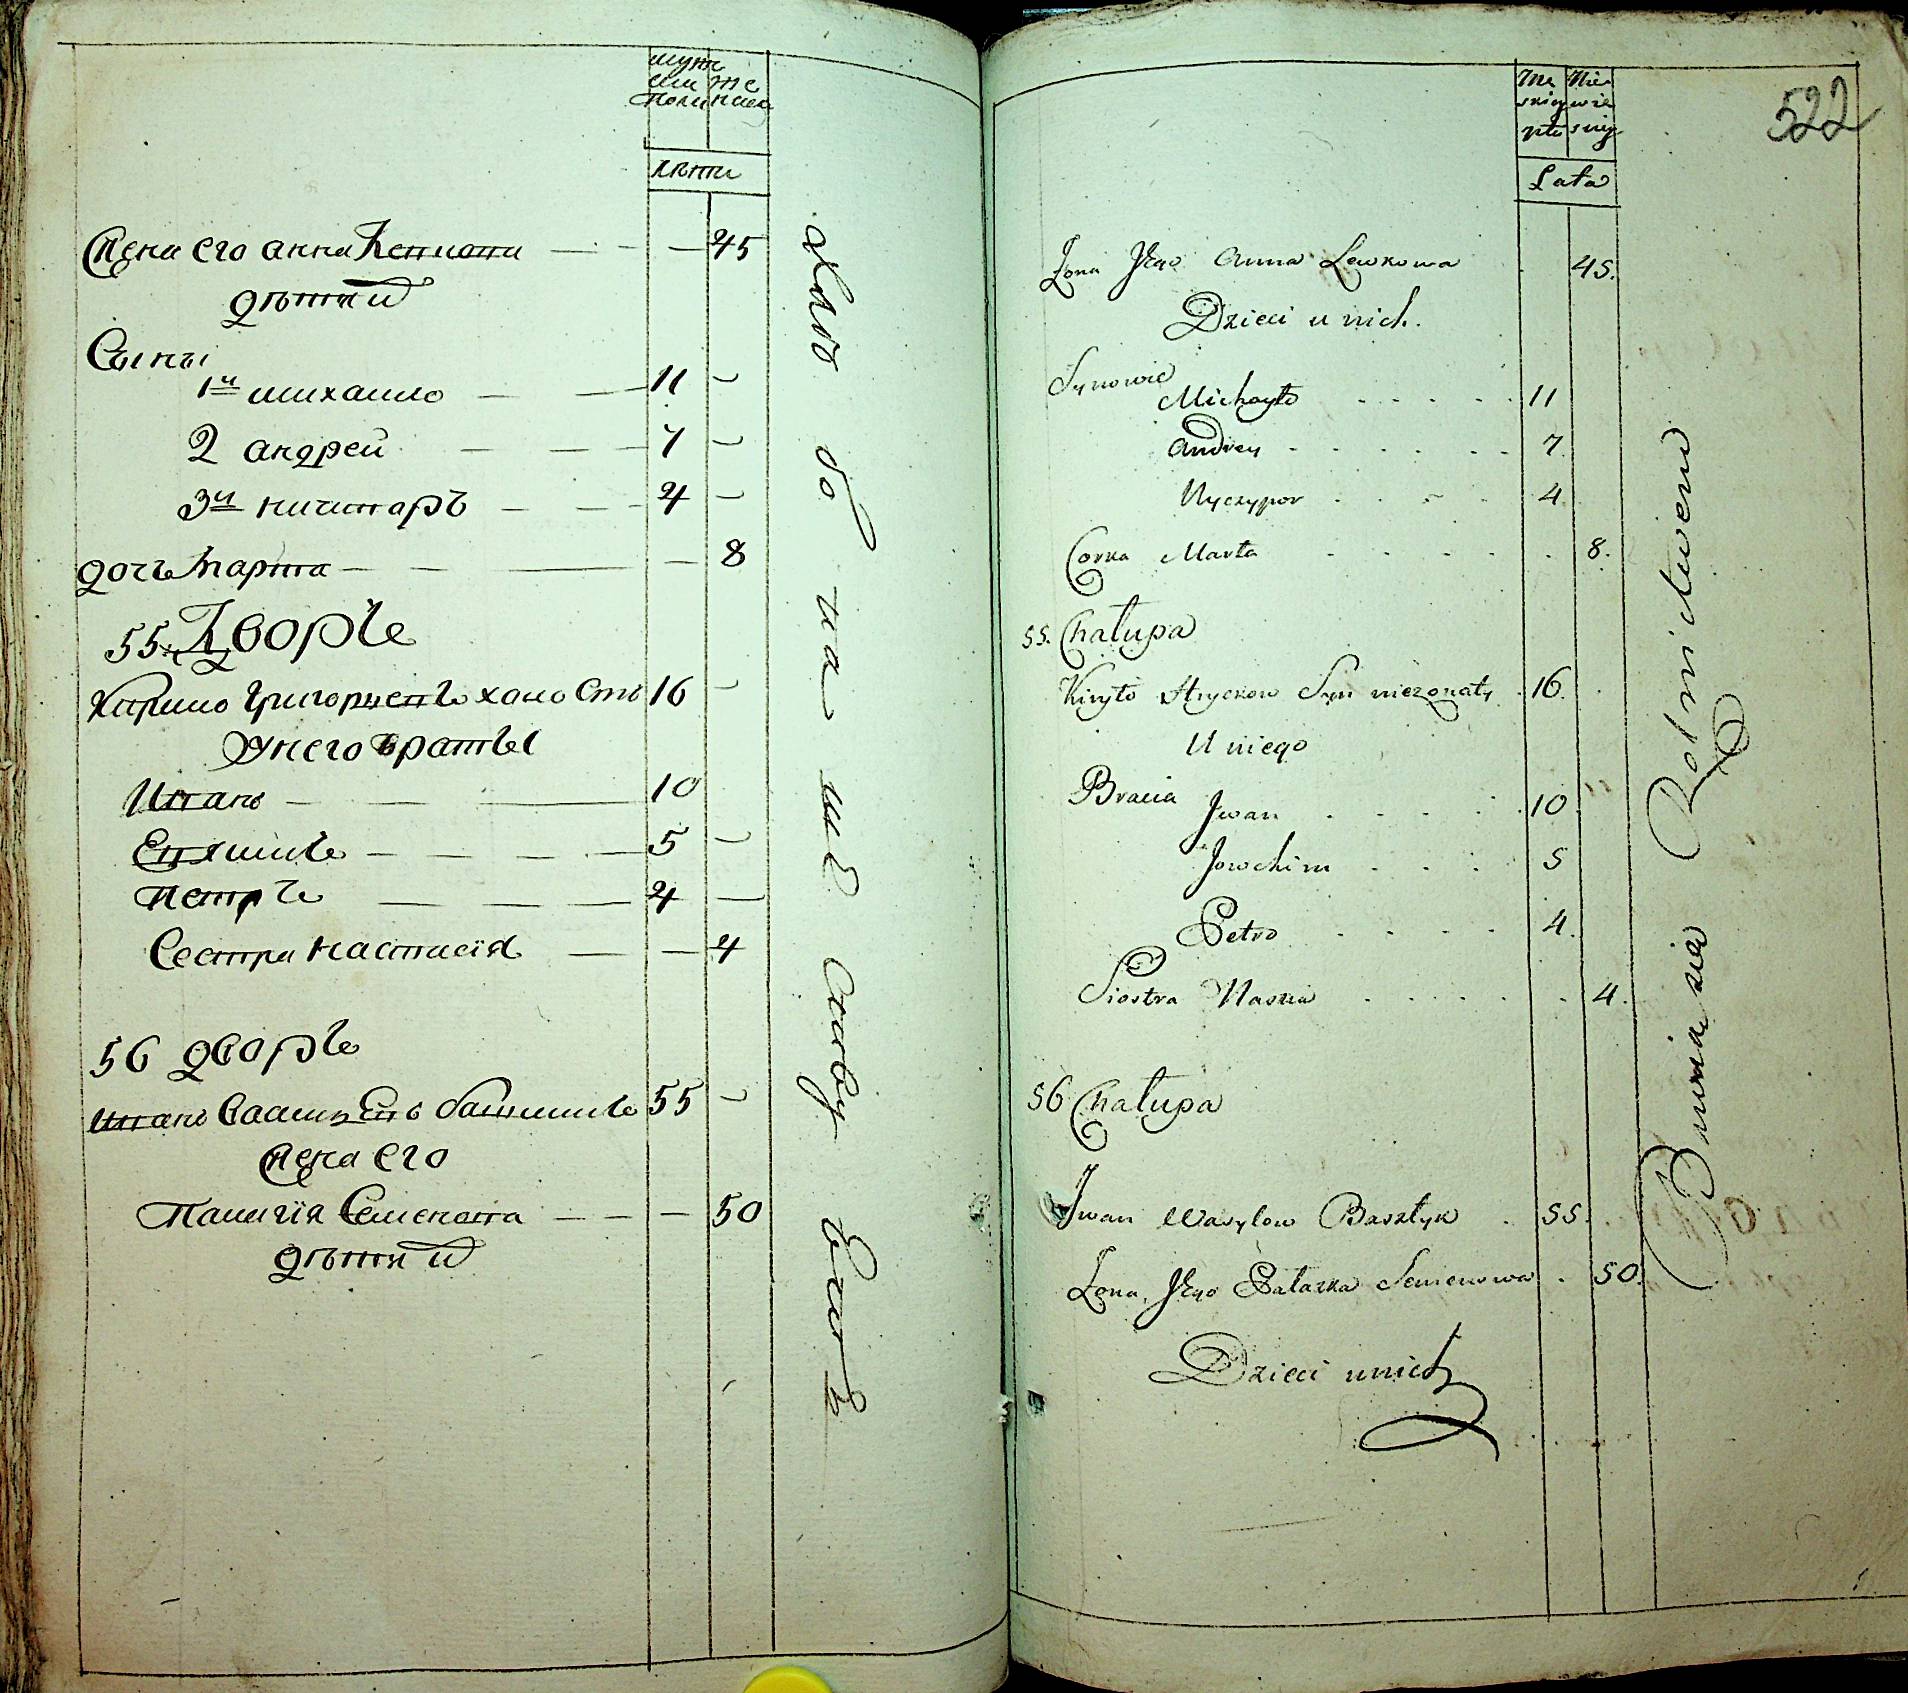 мужеска полу женска
лѣта
Жена его анна Левкова — 45
дѣти и
Сыны
1й михаило — 11 —
2 андрей — 7 —
3й ничипоръ — 4 —
дочь Марта — 8
55. Дворъ
Кирило Григориевъ холостъ 16 —
У него братьы
Иванъ — 10
Ехимъ — 5 —
Петръ — 4 —
Сестра Настасія — 4
56 дворъ
Иванъ Василиевъ баштикъ 55 —
Жена его
Палагія Семенова — 50
дѣти и
хлебопашествомъ
522
Lata
Żona Jego Anna Lewkowa 45.
Dzieci u nich.
Synowie
Michayło 11
Andrey 7
Nyczypor 4
Corka Marta 8.
55. Chałupa
Kiryło Hrycków Syn nieżonaty 16.
U niego
Bracia
Jwan 10
Jowchim 5
Petro 4.
Siostra Naścia 4.
56 Chałupa
Jwan Wasylow Basztyk 55.
Żona Jego Pałazka Semenowa 50.
Dzieci u nich
Bawią się Rolnictwem